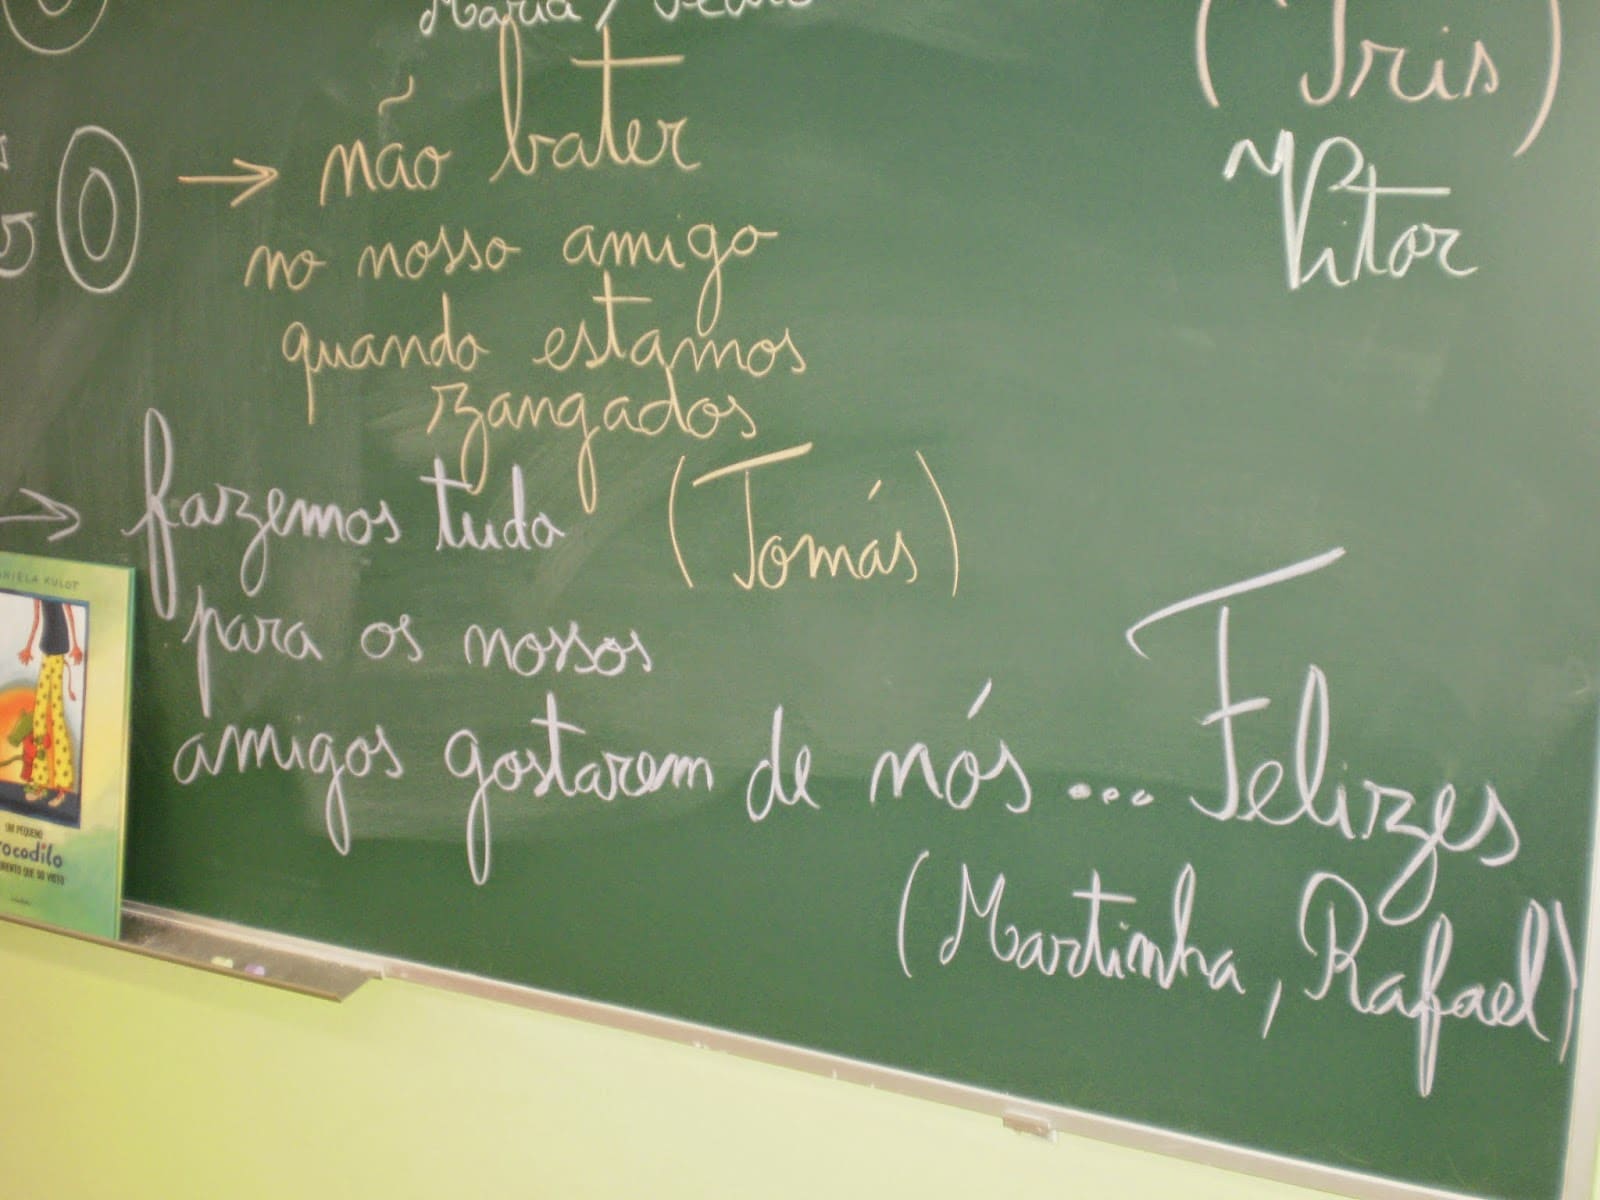 Maria /
(Iris)
Vitor
→ não bater
no nosso amigo
quando estamos
zangados
(Tomás)
→ fazemos tudo
para os nossos
amigos gostarem de nós... Felizes
(Martinha, Rafael)
DANIELA KULOT
UM PEQUENO
crocodilo
QUE SE VISTO